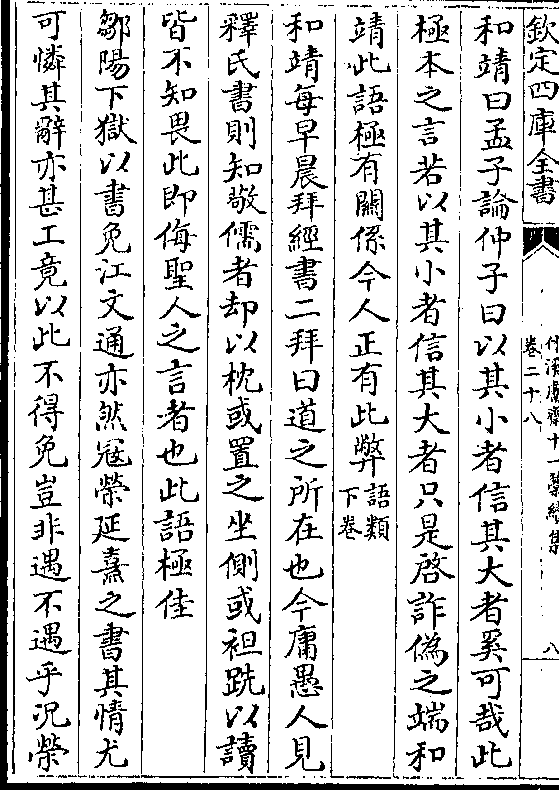 欽定四庫全書
卷二十八
八
和靖曰孟子論仲子曰以其小者信其大者奚可哉此
極本之言若以其小者信其大者只是啓詐偽之端和
靖此語極有關係今人正有此弊語類下卷
和靖每早晨拜經書二拜曰道之所在也今庸愚人見
釋氏書則知敬儒者却以枕或置之坐側或袒跣以讀
皆不知畏此即侮聖人之言者也此語極佳
鄒陽下獄以書免江文通亦然冦榮延熹之書其情尤
可憐其辭亦甚工竟以此不得免豈非遇不遇乎况榮